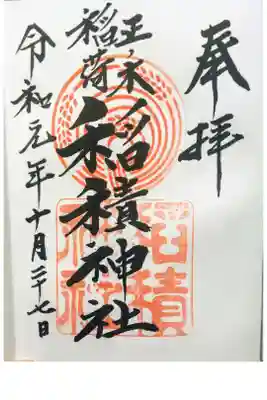 奉拝
正ノ木
稲荷
稲積神社
令和元年十月二十七日
稲積
神社